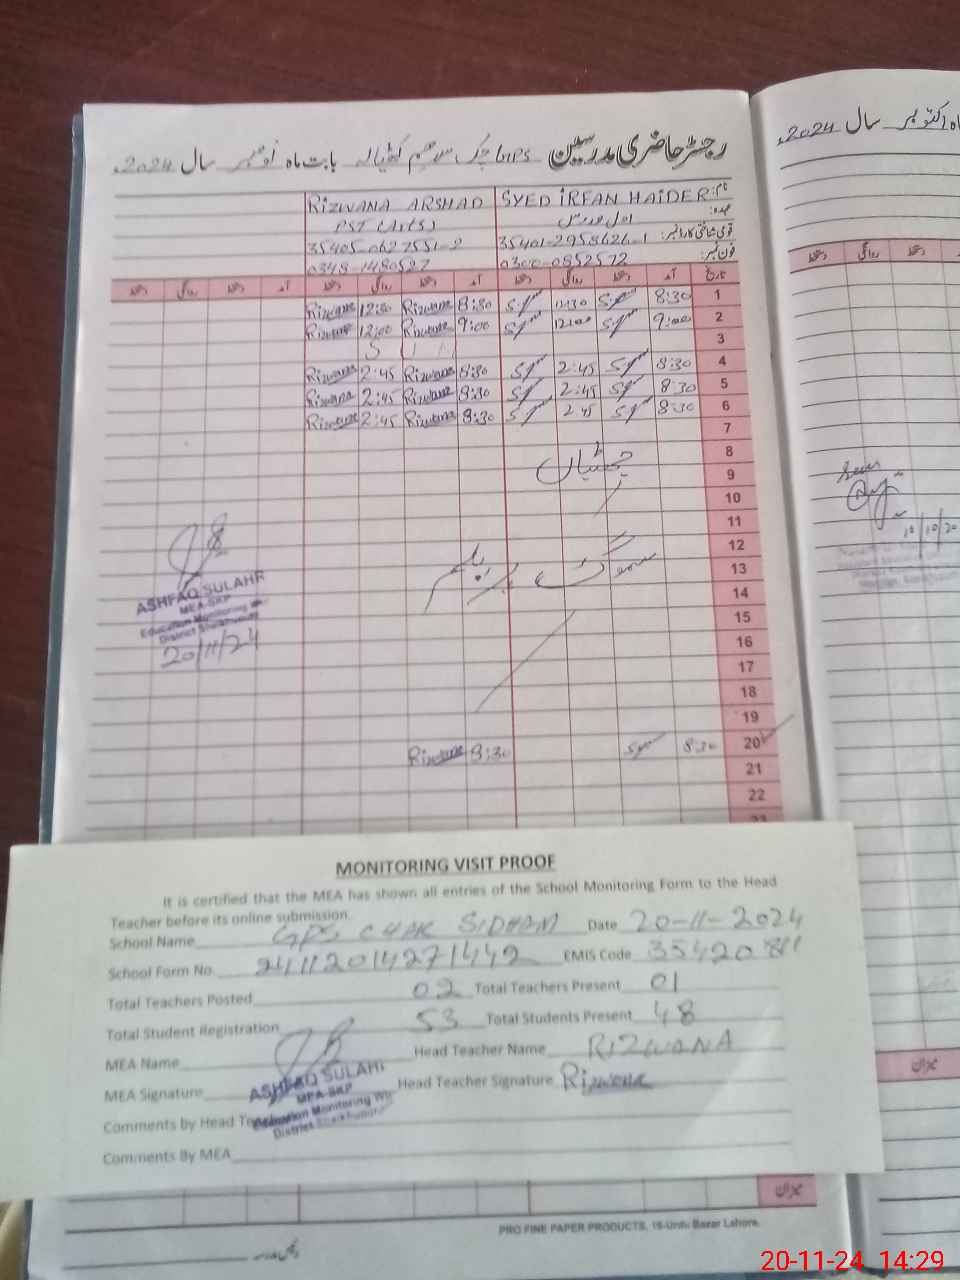 رجسٹر حاضری مدرسین GPS چک سدھم کٹھیالہ بابت ماہ نومبر سال 2024ء
ماہ اکتوبر سال 2024ء
نام: SYED IRFAN HAIDER RIZWANA ARSHAD
عہدہ: اول مدرس PST (Arts)
قومی شناختی کارڈ نمبر: 35401-2958626-1 35405-0627551-2
فون نمبر: 0300-0852572 0348-1480527
تاریخ آمد دستخط روانگی دستخط آمد دستخط روانگی دستخط آمد دستخط روانگی دستخط
1 8:30 12:30 8:30 Rizwana 12:30 Rizwana
2 9:00 12:00 9:00 Rizwana 12:00 Rizwana
3
4 8:30 2:45 8:30 Rizwana 2:45 Rizwana
5 8:30 2:45 8:30 Rizwana 2:45 Rizwana
6 8:30 2:45 8:30 Rizwana 2:45 Rizwana
7
8
9 چھٹیاں
10
11
12
13 سموگ
14
15
16
17
18
19
20 8:30 8:30 Rizwana
21
22
23
ASHFAQ SULAHRI
MEA-SKP
Education Monitoring
District Sheikhupura
20/11/24
Seen
MONITORING VISIT PROOF
It is certified that the MEA has shown all entries of the School Monitoring Form to the Head
Teacher before its online submission.
School Name GPS CHAK SIDHAM Date 20-11-2024
School Form No. 24112014271442 EMIS Code
Total Teachers Posted 02 Total Teachers Present 01
Total Student Registration 53 Total Students Present 48
MEA Name Head Teacher Name RIZWANA
MEA Signature Head Teacher Signature Rizwana
ASHFAQ SULAHRI
MEA-SKP
Education Monitoring
District Sheikhupura
Comments by Head
Comments By MEA
میزان
میزان
PRO FINE PAPER PRODUCTS, 16-Urdu Bazar Lahore.
20-11-24 14:29